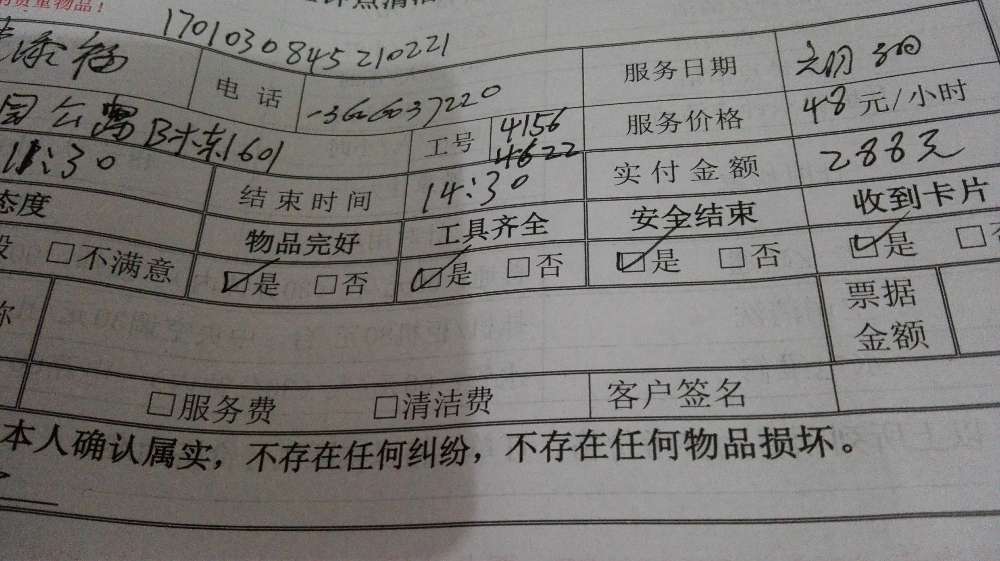 的贵重物品！
1701030845210221
电话 服务日期
B栋1601 工号 4156 服务价格 48元/小时
4622
11:30 结束时间 14:30 实付金额 288元
态度 物品完好 工具齐全 安全结束 收到卡片
□不满意 ☑是 □否 ☑是 □否 ☑是 □否 ☑是
票据
金额
□服务费 □清洁费 客户签名
本人确认属实，不存在任何纠纷，不存在任何物品损坏。